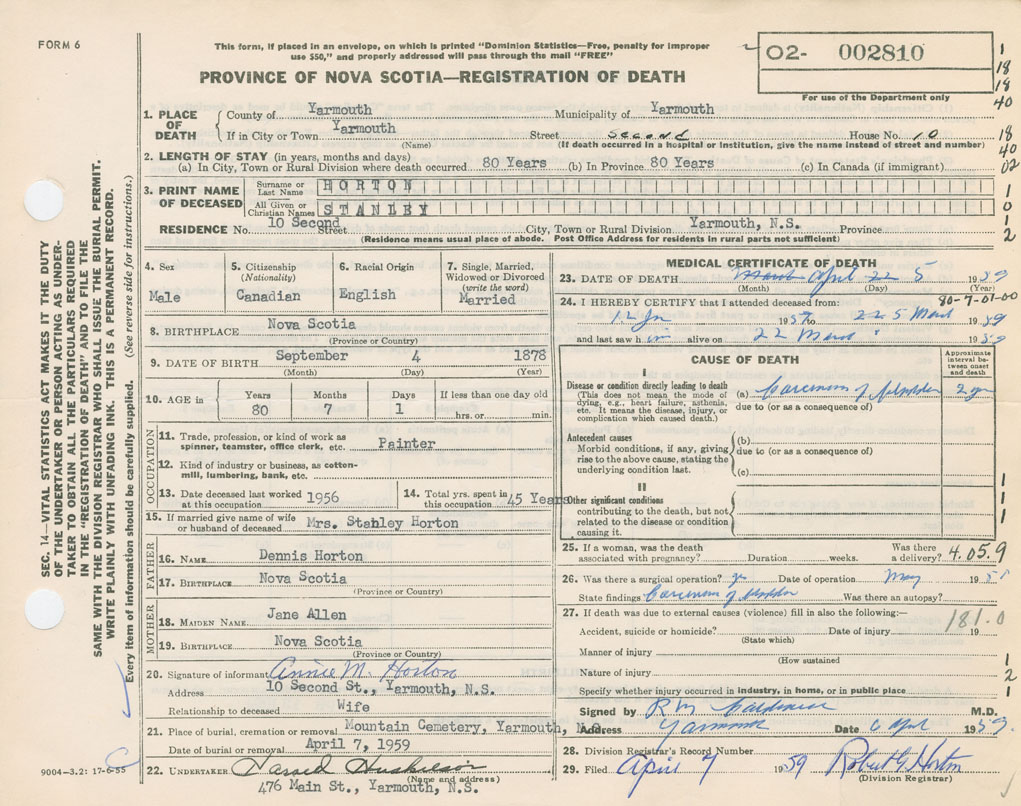 FORM 6
This form, if placed in an envelope, on which is printed "Dominion Statistics—Free, penalty for improper
use $50," and properly addressed will pass through the mail "FREE"
PROVINCE OF NOVA SCOTIA—REGISTRATION OF DEATH
02- 002810
For use of the Department only
1
18
18
40
18
40
02
1
0
1
2
1. PLACE OF DEATH
County of Yarmouth Municipality of Yarmouth
If in City or Town Yarmouth Street Second House No. 10
(Name) (If death occurred in a hospital or institution, give the name instead of street and number)
2. LENGTH OF STAY (in years, months and days)
(a) In City, Town or Rural Division where death occurred 80 Years (b) In Province 80 Years (c) In Canada (if immigrant)
3. PRINT NAME OF DECEASED
Surname or Last Name HORTON
All Given or Christian Names STANLEY
RESIDENCE No. 10 Second Street City, Town or Rural Division Yarmouth, N.S. Province
(Residence means usual place of abode. Post Office Address for residents in rural parts not sufficient)
4. Sex
Male
5. Citizenship
(Nationality)
Canadian
6. Racial Origin
English
7. Single, Married,
Widowed or Divorced
(write the word)
Married
8. BIRTHPLACE Nova Scotia
(Province or Country)
9. DATE OF BIRTH September 4 1878
(Month) (Day) (Year)
10. AGE in
Years Months Days If less than one day old
80 7 1 hrs. or min.
OCCUPATION
11. Trade, profession, or kind of work as
spinner, teamster, office clerk, etc. Painter
12. Kind of industry or business, as cotton-
mill, lumbering, bank, etc.
13. Date deceased last worked
at this occupation 1956
14. Total yrs. spent in
this occupation 45 Years
15. If married give name of wife
or husband of deceased Mrs. Stabley Horton
FATHER
16. NAME Dennis Horton
17. BIRTHPLACE Nova Scotia
(Province or Country)
MOTHER
18. MAIDEN NAME Jane Allen
19. BIRTHPLACE Nova Scotia
(Province or Country)
20. Signature of informant Annie M. Horton
Address 10 Second St., Yarmouth, N.S.
Relationship to deceased Wife
21. Place of burial, cremation or removal Mountain Cemetery, Yarmouth, N.S.
Date of burial or removal April 7, 1959
22. UNDERTAKER
(Name and address)
476 Main St., Yarmouth, N.S.
MEDICAL CERTIFICATE OF DEATH
23. DATE OF DEATH March April 22 5 1959
(Month) (Day) (Year)
80-7-01-00
24. I HEREBY CERTIFY that I attended deceased from:
12 Jn 1957 to 22 5 March 1959
and last saw him alive on 22 March 1959
CAUSE OF DEATH
Approximate
interval be-
tween onset
and death
I
Disease or condition directly leading to death
(This does not mean the mode of
dying, e.g., heart failure, asthenia,
etc. It means the disease, injury, or
complication which caused death.)
(a) Carcinoma of bladder 2 yr
due to (or as a consequence of)
Antecedent causes
Morbid conditions, if any, giving
rise to the above cause, stating the
underlying condition last.
(b)
due to (or as a consequence of)
(c)
II
Other significant conditions
contributing to the death, but not
related to the disease or condition
causing it.
1
1
1
25. If a woman, was the death
associated with pregnancy? Duration weeks. Was there
a delivery?
4.05.9
26. Was there a surgical operation? yes Date of operation May 195
State findings Carcinoma of bladder Was there an autopsy?
27. If death was due to external causes (violence) fill in also the following:—
181.0
Accident, suicide or homicide? Date of injury 19
(State which)
Manner of injury
(How sustained
Nature of injury
Specify whether injury occurred in industry, in home, or in public place
1
2
1
Signed by R M M.D.
Address Yarmouth Date 6 April 1959.
28. Division Registrar's Record Number
29. Filed April 7 1959 Robert G Horton
(Division Registrar)
SEC. 14—VITAL STATISTICS ACT MAKES IT THE DUTY
OF THE UNDERTAKER OR PERSON ACTING AS UNDER-
TAKER TO OBTAIN ALL THE PARTICULARS REQUIRED
IN THE "REGISTRATION OF DEATH" AND TO FILE THE
SAME WITH THE DIVISION REGISTRAR WHO SHALL ISSUE THE BURIAL PERMIT.
WRITE PLAINLY WITH UNFADING INK. THIS IS A PERMANENT RECORD.
Every item of information should be carefully supplied. (See reverse side for instructions.)
9004-3.2: 17-6-55